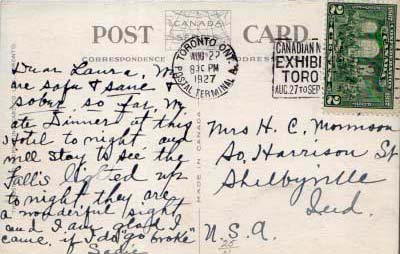 POST CARD
CANADA
CORRESPONDENCE
ADDRESS
TORONTO, ONT.
AUG 22
8 30 PM
1927
POSTAL TERMINAL A
CANADIAN N
EXHIBI
TORO
AUG. 27 TO SEP
2 2
MADE IN CANADA
Dear Laura, We
are safe & sane &
sober so far. We
ate Dinner at this
Hotel to night and
will stay to see the
Falls lighted up
to night, they are
a wonderful sight
and I am glad I
came, if I do "go broke"
Sadie
Mrs H. C. Morrison
So. Harrison St
Shelbyville
Ind.
U.S.A.